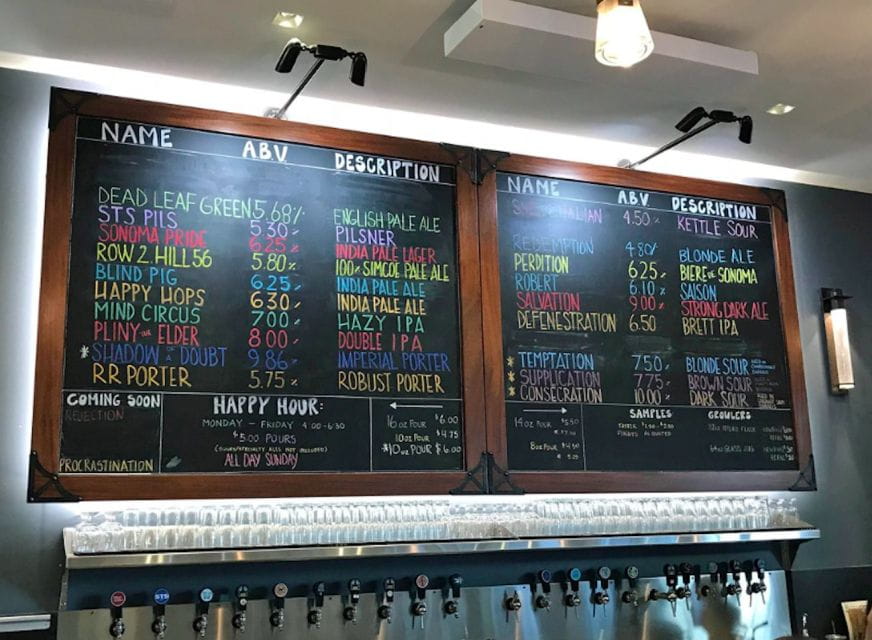 NAME ABV DESCRIPTION
DEAD LEAF GREEN 5.68% ENGLISH PALE ALE
STS PILS 5.30% PILSNER
SONOMA PRIDE 6.25% INDIA PALE LAGER
ROW 2, HILL 56 5.80% 100% SIMCOE PALE ALE
BLIND PIG 6.25% INDIA PALE ALE
HAPPY HOPS 6.30% INDIA PALE ALE
MIND CIRCUS 7.00% HAZY IPA
PLINY THE ELDER 8.00% DOUBLE IPA
*SHADOW OF A DOUBT 9.86% IMPERIAL PORTER
RR PORTER 5.75% ROBUST PORTER
COMING SOON
REJECTION
PROCRASTINATION
HAPPY HOUR:
MONDAY - FRIDAY 4:00-6:30
$5.00 POURS
ALL DAY SUNDAY
16 OZ POUR $6.00
10 OZ POUR $4.75
*10 OZ POUR $6.00
NAME ABV DESCRIPTION
4.50% KETTLE SOUR
REDEMPTION 4.80% BLONDE ALE
PERDITION 6.25% BIERE DE SONOMA
ROBERT 6.10% SAISON
SALVATION 9.00% STRONG DARK ALE
DEFENESTRATION 6.50 BRETT IPA
*TEMPTATION 7.50% BLONDE SOUR
*SUPPLICATION 7.75% BROWN SOUR
*CONSECRATION 10.00% DARK SOUR
14 OZ POUR
8 OZ POUR
SAMPLES
GROWLERS
STS